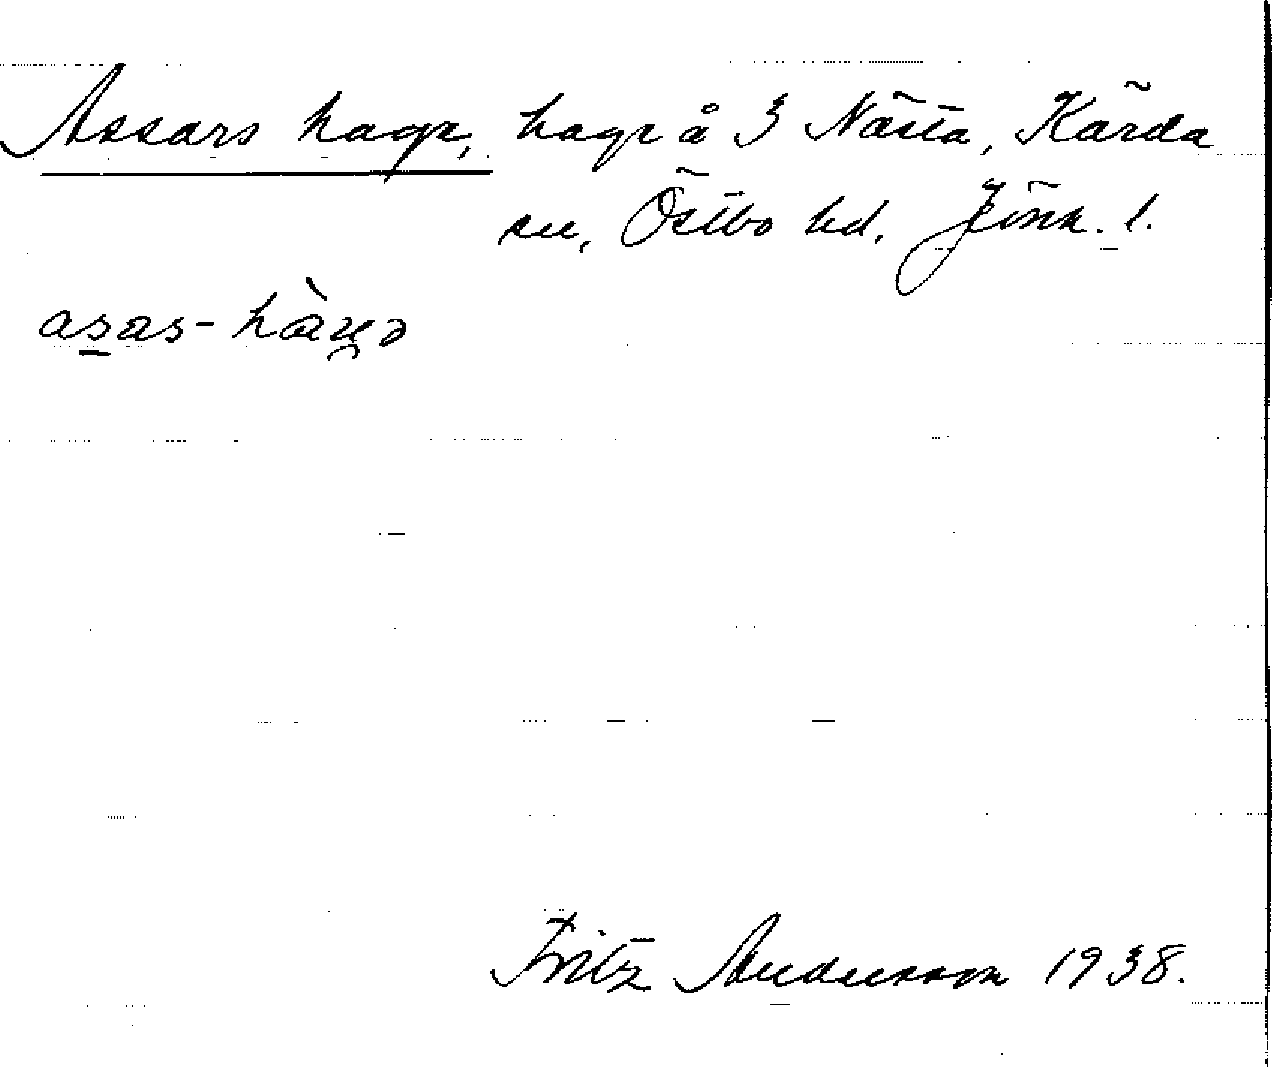 Assars hage, hage å 3 Nästa, Kärda
sn, Östbo hd. Jönk. l.
asas-hàgə
Fritz Andersson 1938.